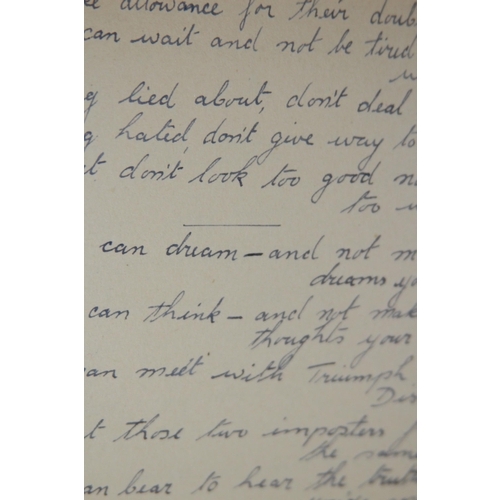 allowance for their doub
can wait and not be tired
g lied about, don't deal
g hated, don't give way to
t don't look too good n
too w
can dream — and not m
dreams yo
can think — and not mak
thoughts your
an meet with Triumph
Dis
t those two imposters
the same
an bear to hear the trut